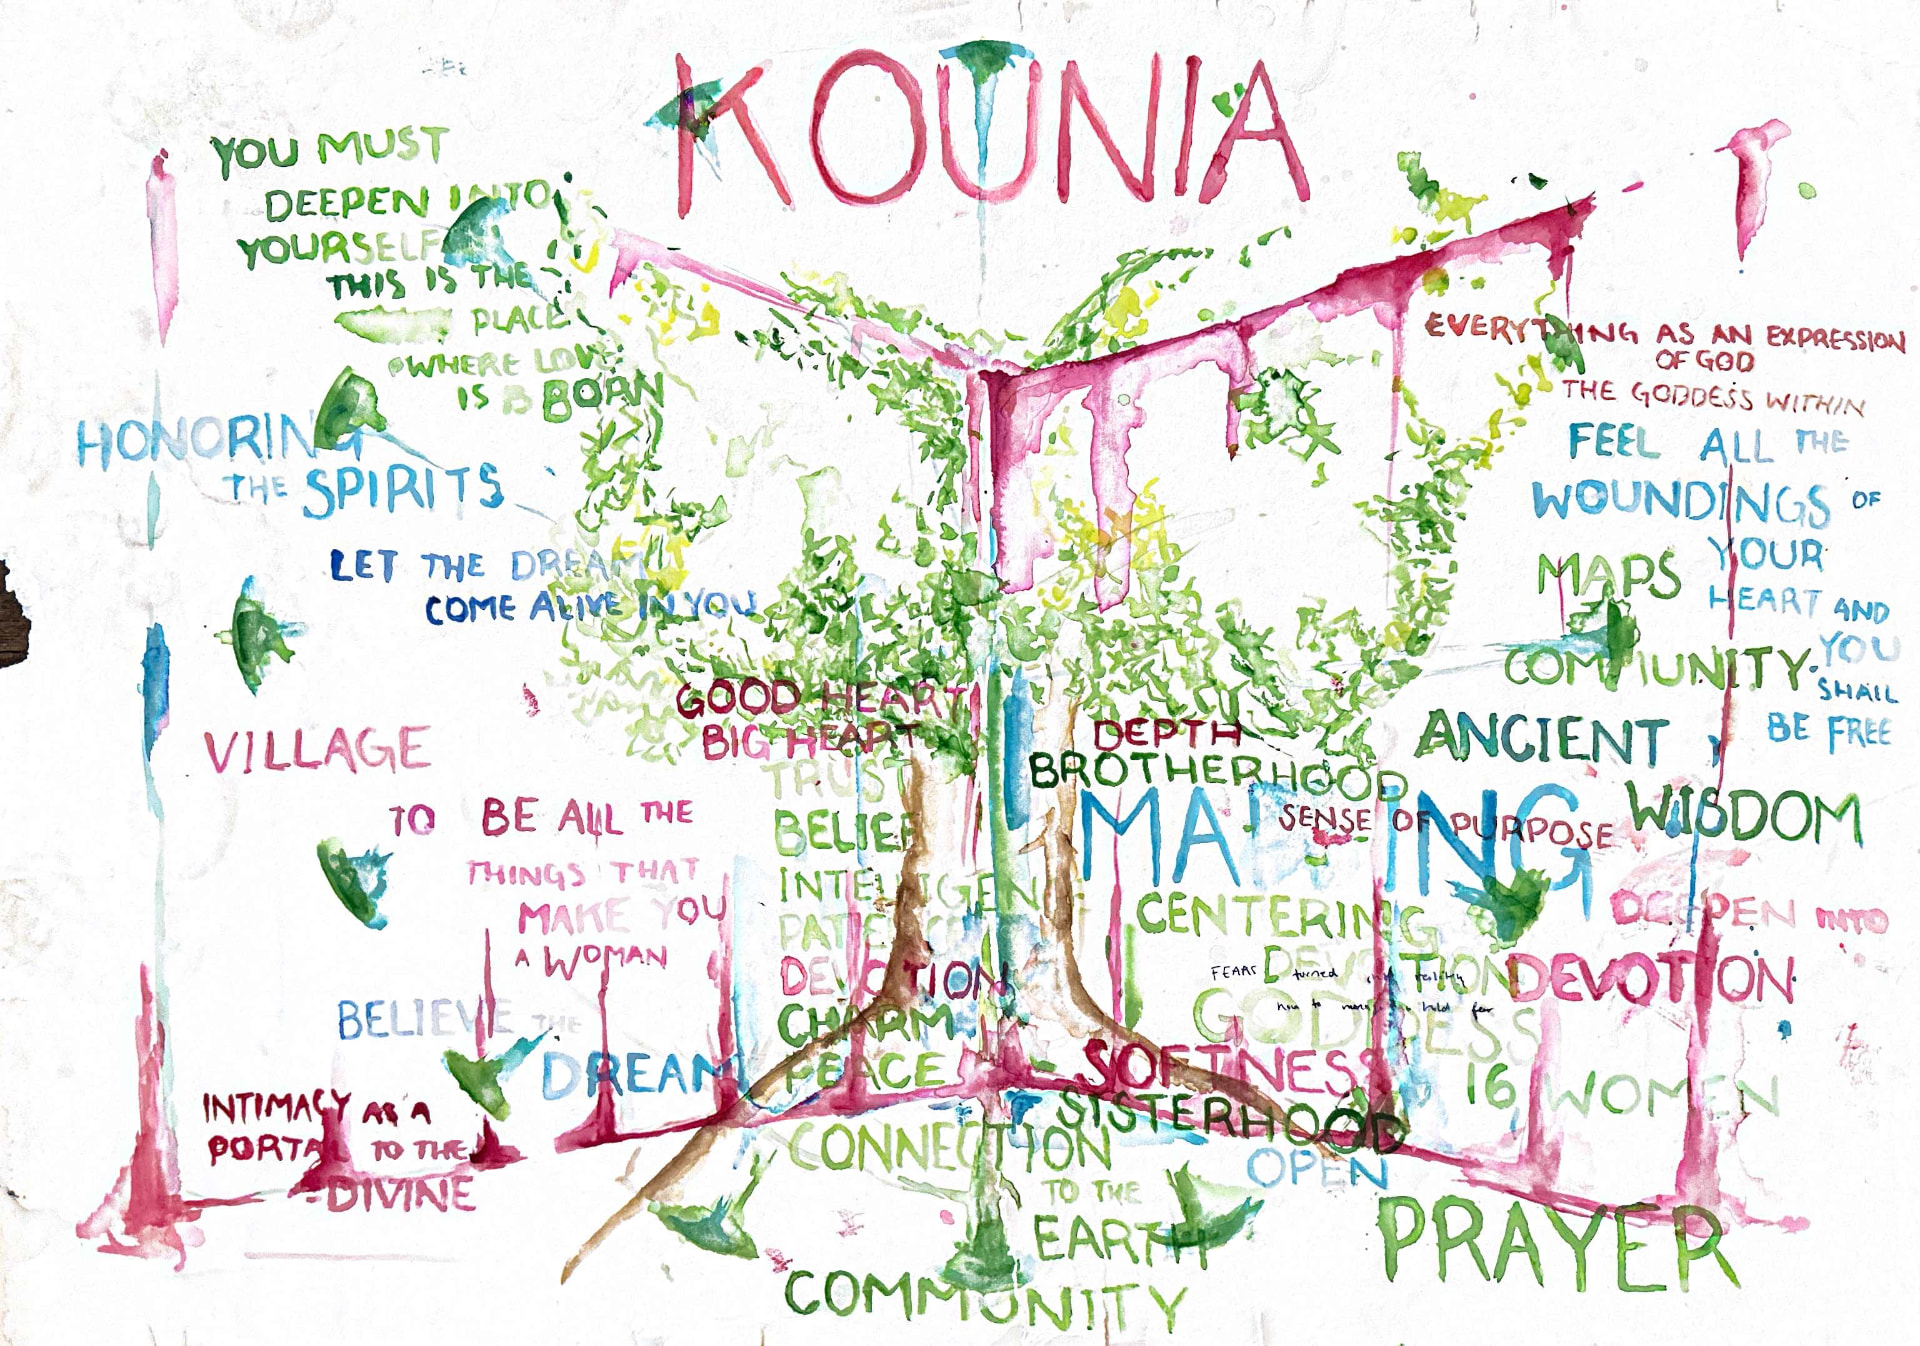 KOUNIA
YOU MUST
DEEPEN INTO
YOURSELF
THIS IS THE
PLACE
WHERE LOVE
IS B BORN
HONORING
THE SPIRITS
LET THE DREAM
COME ALIVE IN YOU
VILLAGE
TO BE ALL THE
THINGS THAT
MAKE YOU
A WOMAN
BELIEVE THE
DREAM
INTIMACY AS A
PORTAL TO THE
DIVINE
GOOD HEART
BIG HEART
TRUST
BELIEF
INTELLIGENCE
PATIENCE
DEVOTION
CHARM
PEACE
CONNECTION
TO THE
EARTH
COMMUNITY
DEPTH
BROTHERHOOD
MAPPING
SENSE OF PURPOSE
CENTERING
DEVOTION
FEARS turned into reality
how to hold fear
GODDESS
SOFTNESS
SISTERHOOD
OPEN
PRAYER
16 WOMEN
EVERYTHING AS AN EXPRESSION
OF GOD
THE GODDESS WITHIN
FEEL ALL THE
WOUNDINGS OF
YOUR
HEART AND
YOU
SHALL
BE FREE
MAPS
COMMUNITY
ANCIENT
WISDOM
DEEPEN INTO
DEVOTION